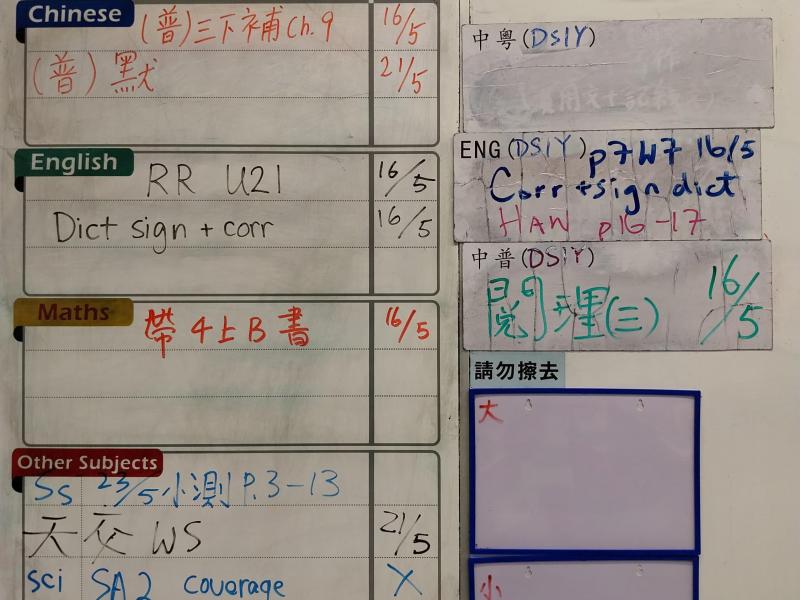 Chinese
(普)三下補Ch.9 16/5
(普)默 21/5
English
RR U21 16/5
Dict sign + corr 16/5
Maths
帶4上B書 16/5
Other Subjects
Ss 23/5小測P.3-13
天交WS 21/5
sci SA2 coverage X
中粵(DSIY)
ENG(DSIY) p7W7 16/5
Corr + sign dict
HAW p16-17
中普(DSIY)
閱理(三) 16/5
請勿擦去
大
小